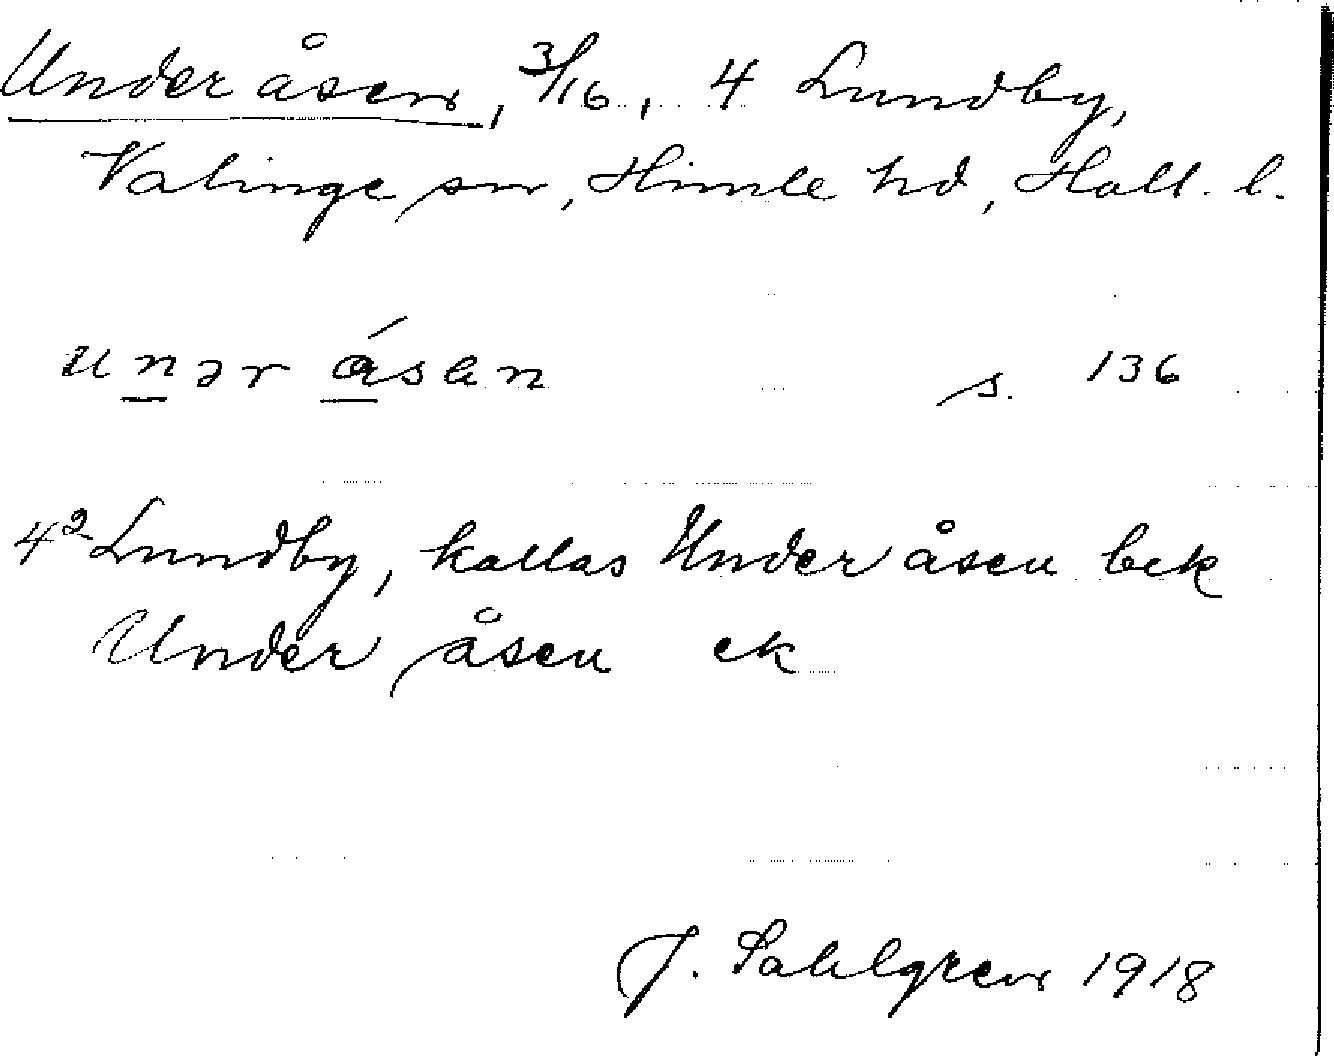 Under åsen, 3/16, 4 Lundby,
Valinge sn, Himle hd, Hall. l.
unər ásen s. 136
4² Lundby, kallas Under åsen bek
Under åsen ek
J. Sahlgren 1918